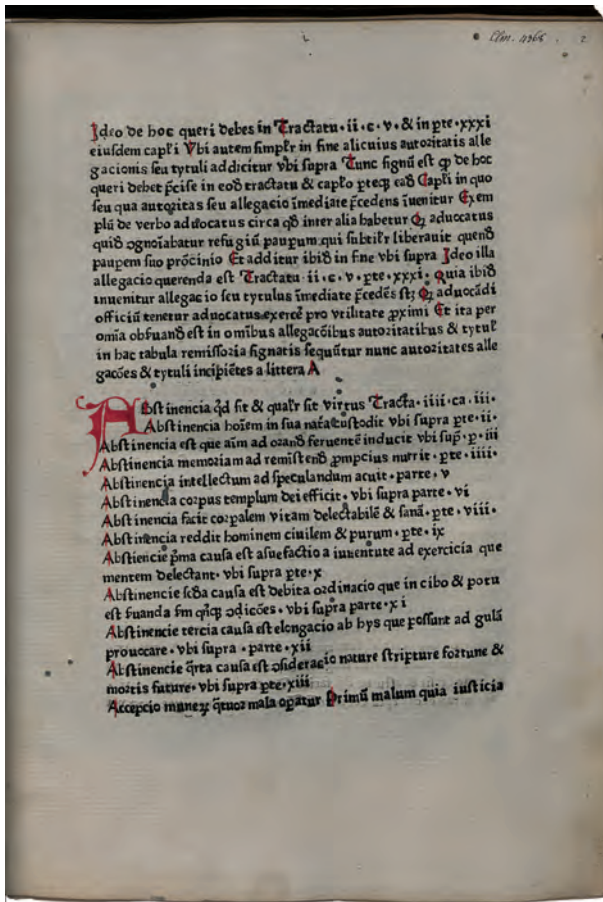 Clm. 4365. 2
Ideo de hoc queri debes in Tractatu·ii·c·v·& in p̱te·xxxi
eiusdem capłi Vbi autem simpłr in fine alicuius autoꝛitatis alle
gacionis seu tytuli addicitur vbi supra Tunc signū est ꝙ de hoc
queri debet p̱cise in eoð tractatu & capło p̱teqꝫ eað Capłi in quo
seu qua autoꝛitas seu allegacio īmediate p̱cedens īuenitur Exem
plū de verbo aduocatus circa qð inter alia habetur Qꝫ aduocatus
quið ꝯgnoīabatur refugiū paupum qui subtiłr liberauit quenð
paupem suo ꝓcinio Et additur ibið in fine vbi supra Ideo illa
allegacio querenda est Tractatu·ii·c·v·p̱te·xxxi· Quia ibið
inuenitur allegacio seu tytulus īmediate p̱cedēs sꝫ Qꝫ aduocādi
officiū tenetur aduocatus exercē pro vtilitate ꝓximi Et ita per
omīa obſuanð est in omībus allegacōibus autoꝛitatibus & tytuł
in hac tabula remissoꝛia signatis sequūtur nunc autoꝛitates alle
gacōes & tytuli incipiētes a littera A
Abstinencia qð sit & qualr sit virtus Tracta·iiii·ca·iii·
Abstinencia hoīem in sua nata custodit vbi supra p̱te·ii·
Abstinencia est que aīm ad oꝛanð feruentē inducit vbi sup̄·p̱·iii
Abstinencia memoꝛiam ad remistenð ꝓmpcius nutrit·p̱te·iiii·
Abstinencia intellectum ad speculandum acuit·parte·v
Abstinencia coꝛpus templum dei efficit·vbi supra parte·vi
Abstinencia facit coꝛpalem vitam delectabilē & sanā·p̱te·viii·
Abstinencia reddit hominem ciuilem & purum·p̱te·ix
Abstiencie p̄ma causa est asuefactio a iuuentute ad exercicia que
mentem delectant·vbi supra p̱te·x
Abstinencie scða causa est debita oꝛdinacio que in cibo & potu
est ſuanda ſm qꝫqꝫ ꝯdicōes·vbi supra parte·xi
Abstinencie tercia causa est elongacio ab hys que possunt ad gulā
prouocare·vbi supra·parte·xii
Abstinencie q̄rta causa est ꝯsideracio nature scripture foꝛtune &
moꝛtis future·vbi supra p̱te·xiii
Accepcio muneꝝ q̄tuoꝛ mala op̱atur Primū malum quia iusticia